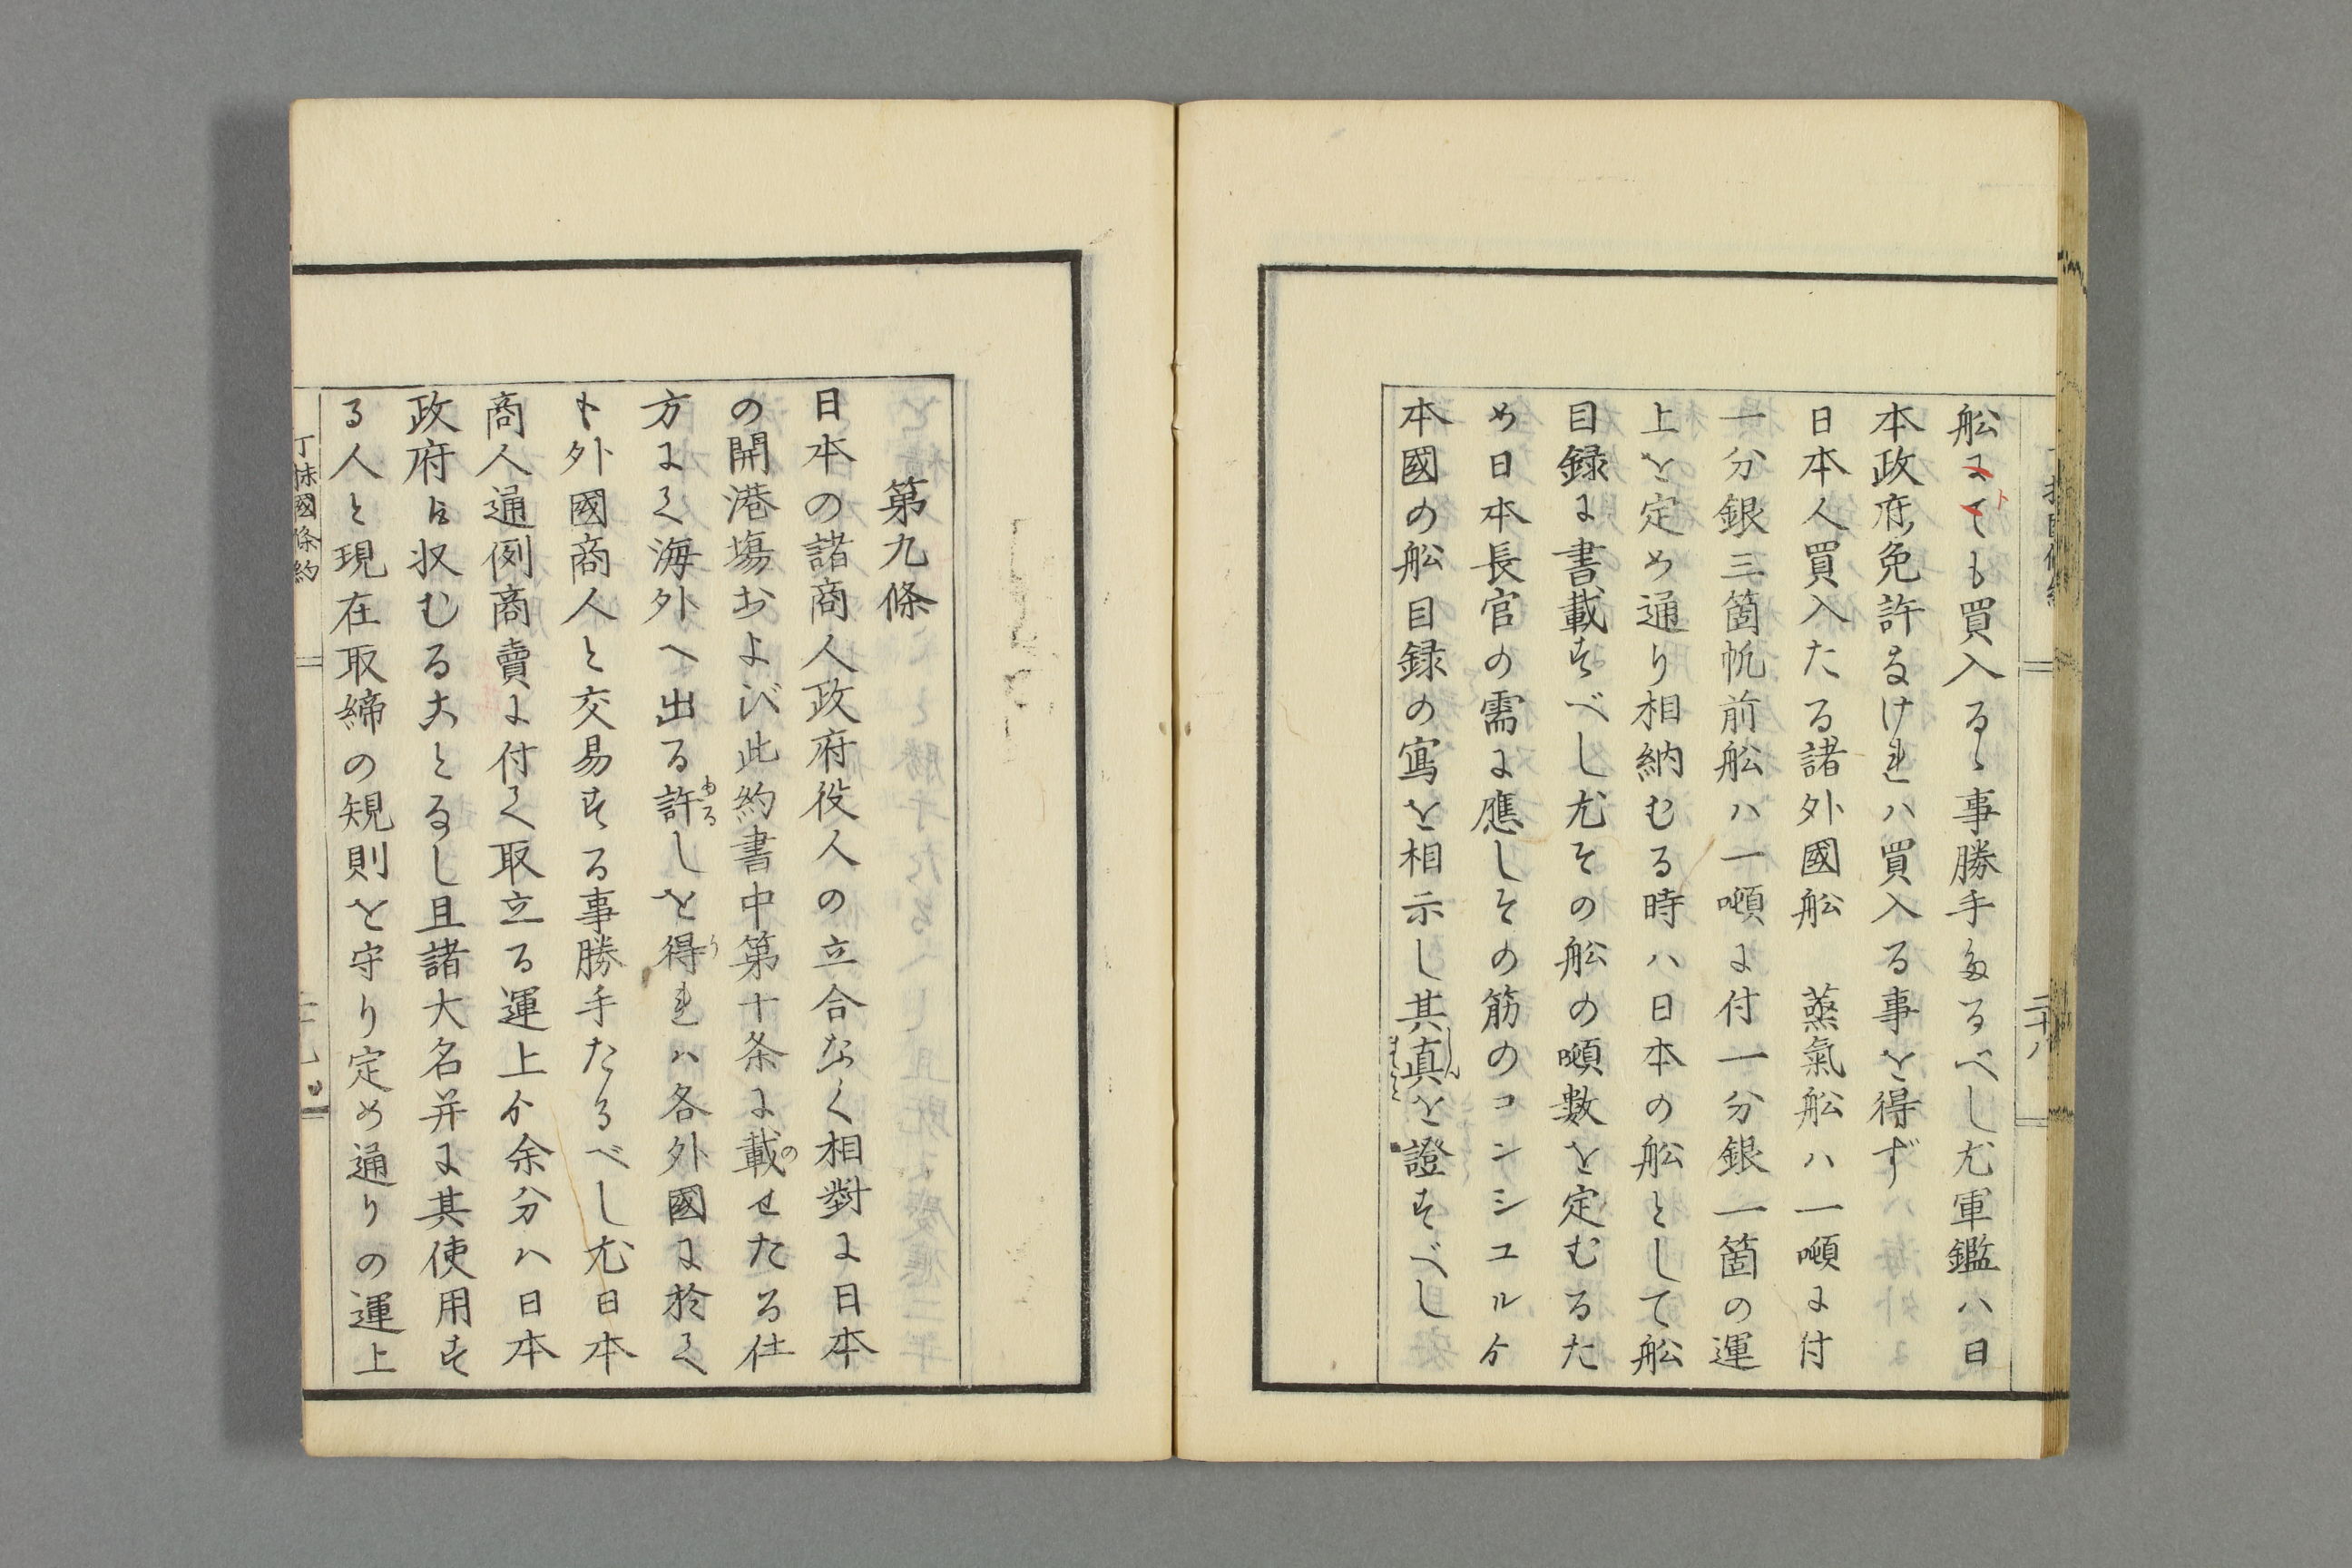 舩にても買入るゝ事勝手なるべし尤軍鑑ハ日
本政府免許なけれハ買入る事を得ず
日本人買入たる諸外國舩　蒸氣舩ハ一噸に付
一分銀三箇帆前舩ハ一噸に付一分銀一箇の運
上を定め通り相納むる時ハ日本の舩として舩
目録に書載すべし尤その舩の噸數を定むるた
め日本長官の需に應しその筋のコンシユルゟ
本國の舩目録の寫を相示し其真を證すべし
第九條
日本の諸商人政府役人の立合なく相對に日本
の開港塲および此約書中第十条に載せたる仕
方にて海外へ出る許しを得れハ各外國に於て
ト外國商人と交易する事勝手たるべし尤日本
商人通例商賣に付て取立る運上ゟ余分ハ日本
政府に収むることなし且諸大名并に其使用す
る人と現在取締の規則を守り定め通りの運上
丁抹國條約